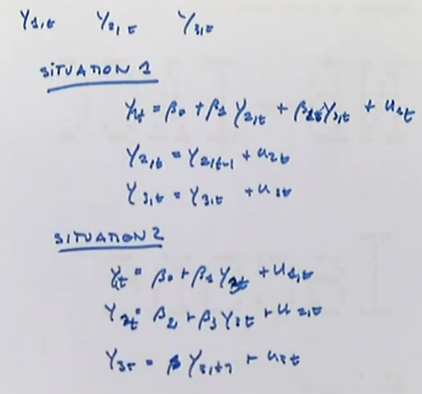 Y1,t Y2,t Y3,t
SITUATION 1
Y1t = β0 + β1 Y2,t + β2 Y3,t + u1t
Y2,t = Y2,t-1 + u2t
Y3,t = Y3,t + u3t
SITUATION 2
Y1t = β0 + β1 Y2t + u1,t
Y2t = β2 + β3 Y3t + u2,t
Y3t = Y3,t-1 + u3t